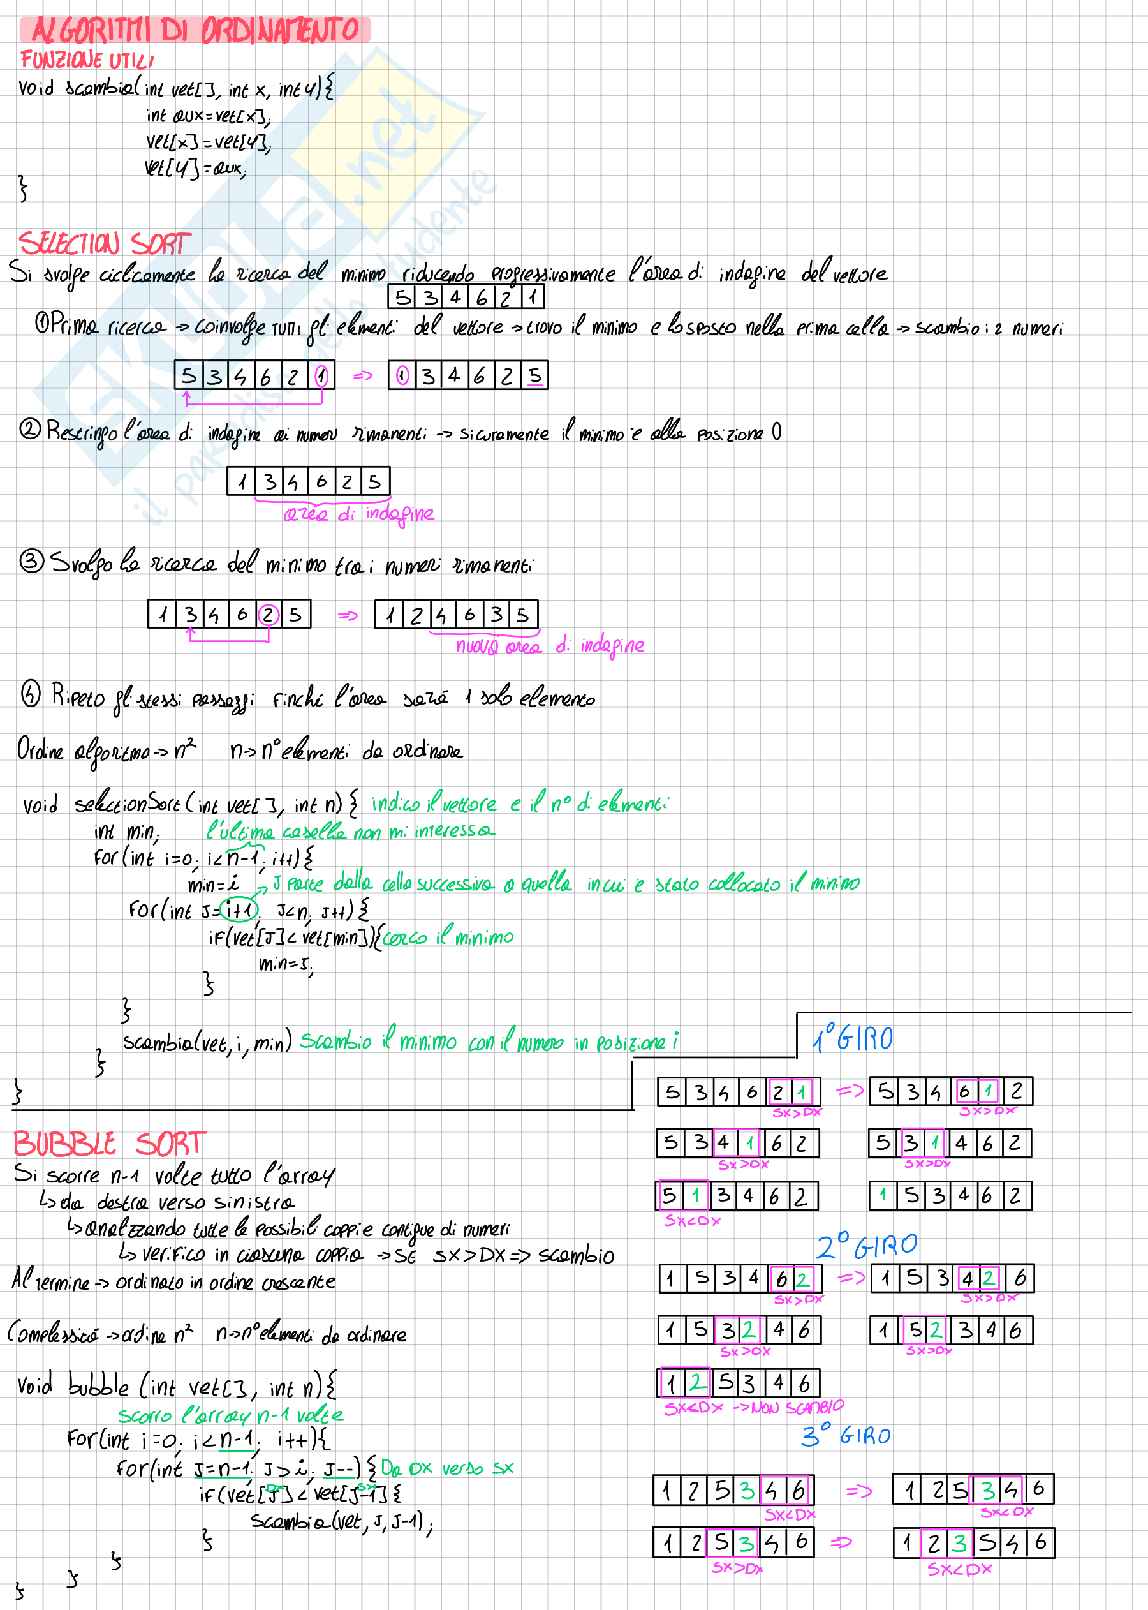 ALGORITMI DI ORDINAMENTO
FUNZIONE UTILI
void scambia(int vet[], int x, int y){
int aux=vet[x];
vet[x]=vet[y];
vet[y]=aux;
}
SKUOLA.net
il paradiso dello studente
SELECTION SORT
Si svolge ciclicamente la ricerca del minimo riducendo progressivamente l'area di indagine del vettore
5 3 4 6 2 1
① Prima ricerca → coinvolge tutti gli elementi del vettore → trovo il minimo e lo sposto nella prima cella → scambio i 2 numeri
5 3 4 6 2 1 => 1 3 4 6 2 5
② Restringo l'area di indagine ai numeri rimanenti → sicuramente il minimo è alla posizione 0
1 3 4 6 2 5
area di indagine
③ Svolgo la ricerca del minimo tra i numeri rimanenti
1 3 4 6 2 5 => 1 2 4 6 3 5
nuova area di indagine
④ Ripeto gli stessi passaggi finché l'area sarà 1 solo elemento
Ordine algoritmo → n² n → n° elementi da ordinare
void selectionSort(int vet[], int n){ indico il vettore e il n° di elementi
int min; l'ultima casella non mi interessa
for(int i=0; i<n-1; i++){
min=i → J parte dalla cella successiva a quella in cui è stato collocato il minimo
for(int J=i+1; J<n; J++){
if(vet[J]<vet[min]){ cerco il minimo
min=J;
}
}
scambia(vet, i, min) scambio il minimo con il numero in posizione i
}
}
BUBBLE SORT
Si scorre n-1 volte tutto l'array
↳ da destra verso sinistra
↳ analizzando tutte le possibili coppie contigue di numeri
↳ verifico in ciascuna coppia → SE SX>DX => scambio
Al termine → ordinato in ordine crescente
Complessità → ordine n² n → n° elementi da ordinare
void bubble (int vet[], int n){
scorro l'array n-1 volte
for(int i=0; i<n-1; i++){
for(int J=n-1; J>i; J--){ Da DX verso SX
DX SX
if(vet[J]<vet[J-1]{
scambia(vet, J, J-1);
}
}
}
}
1° GIRO
5 3 4 6 2 1 => 5 3 4 6 1 2
SX>DX SX>DX
5 3 4 1 6 2 5 3 1 4 6 2
SX>DX SX>DX
5 1 3 4 6 2 1 5 3 4 6 2
SX<DX
2° GIRO
1 5 3 4 6 2 => 1 5 3 4 2 6
SX>DX SX>DX
1 5 3 2 4 6 1 5 2 3 4 6
SX>DX SX>DX
1 2 5 3 4 6
SX<DX → NON SCAMBIO
3° GIRO
1 2 5 3 4 6 => 1 2 5 3 4 6
SX<DX SX<DX
1 2 5 3 4 6 => 1 2 3 5 4 6
SX>DX SX<DX